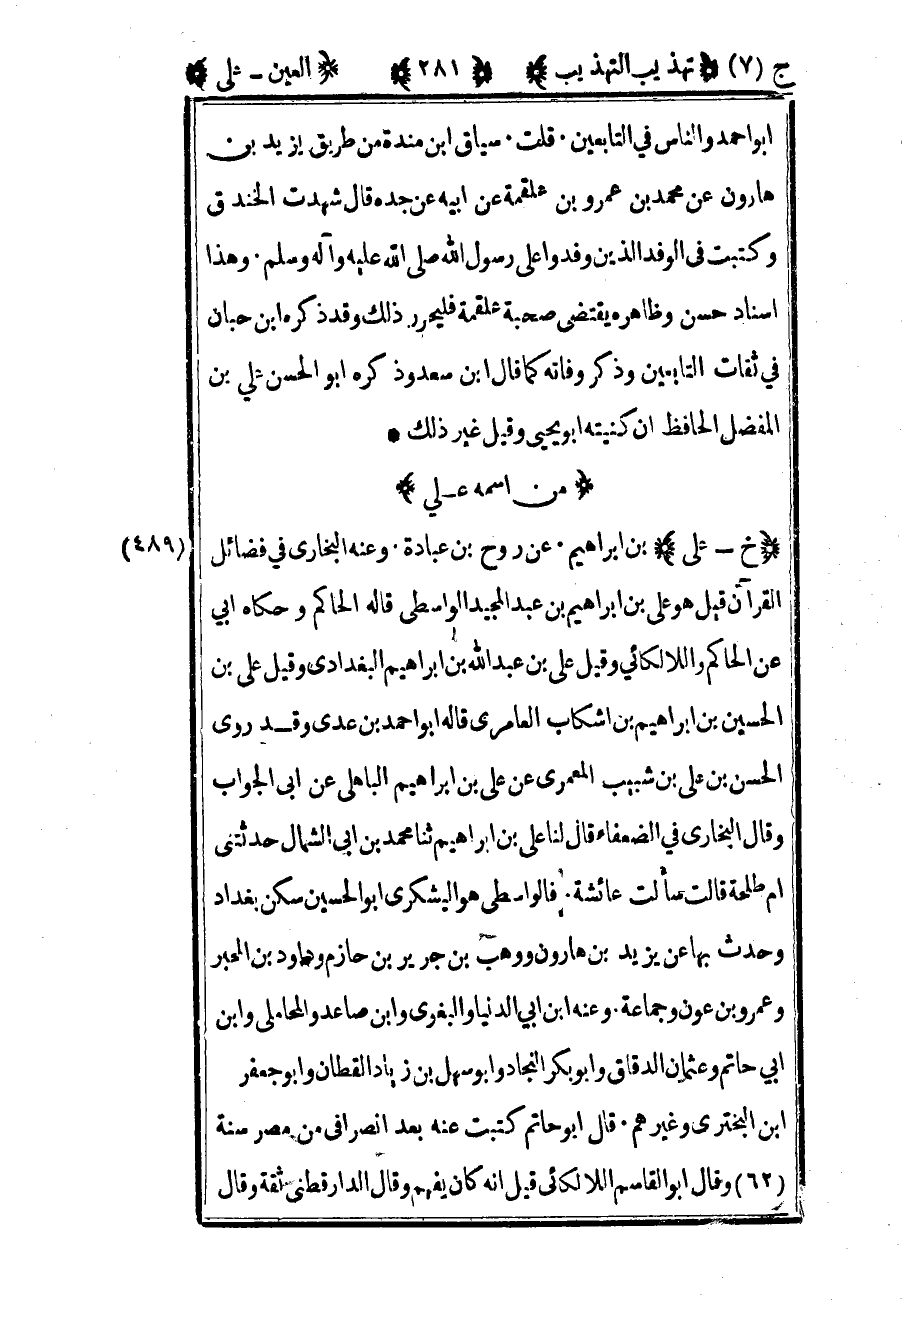 ج (٧) ﴿ تهذيب التهذيب ﴾ ﴿ ٢٨١ ﴾ ﴿ العين ـ علي ﴾
ابو احمد والناس في التابعين ٠ قلت ٠ سياق ابن مندة من طريق يزيد بن
هارون عن محمد بن عمرو بن علقمة عن ابيه عن جده قال شهدت الخندق
وكتبت فى الوفد الذين وفدوا على رسول الله صلى الله عليه وآله وسلم ٠ وهذا
اسناد حسن وظاهره يقتضى صحبة علقمة فليحرر ذلك وقد ذكره ابن حبان
في ثقات التابعين وذكر وفاته كما قال ابن سعد وذكره ابو الحسن علي بن
المفضل الحافظ ان كنيته ابو يحيى وقيل غير ذلك •
﴿ من اسمه عـلي ﴾
﴿ خ ـ علي ﴾ بن ابراهيم ٠ عن روح بن عبادة ٠ وعنه البخارى في فضائل (٤٨٩)
القرآن قيل هو على بن ابراهيم بن عبد المجيد الواسطى قاله الحاكم و حكاه ابي
عن الحاكم واللالكائي وقيل على بن عبد الله بن ابراهيم البغدادى وقيل على بن
الحسين بن ابراهيم بن اشكاب العامرى قاله ابو احمد بن عدى وقــد روى
الحسن بن على بن شبيب المعمرى عن على بن ابراهيم الباهلى عن ابى الجواب
وقال البخارى في الضعفاء قال لنا على بن ابراهيم ثنا محمد بن ابي الشمال حدثتنى
ام طلحة قالت سألت عائشة ٠ فالواسطى هو اليشكرى ابو الحسين سكن بغداد
وحدث بها عن يزيد بن هارون ووهب بن جرير بن حازم وداود بن المحبر
وعمرو بن عون وجماعة ٠ وعنه ابن ابي الدنيا والبغوى وابن صاعد والمحاملى وابن
ابي حاتم وعثمان الدقاق وابو بكر النجاد وابو سهل بن زياد القطان وابو جعفر
ابن البخترى وغيرهم ٠ قال ابو حاتم كتبت عنه بعد انصرافى من مصر سنة
(٦٢) وقال ابو القاسم اللالكائى قيل انه كان يفهم وقال الدارقطنى ثقة وقال